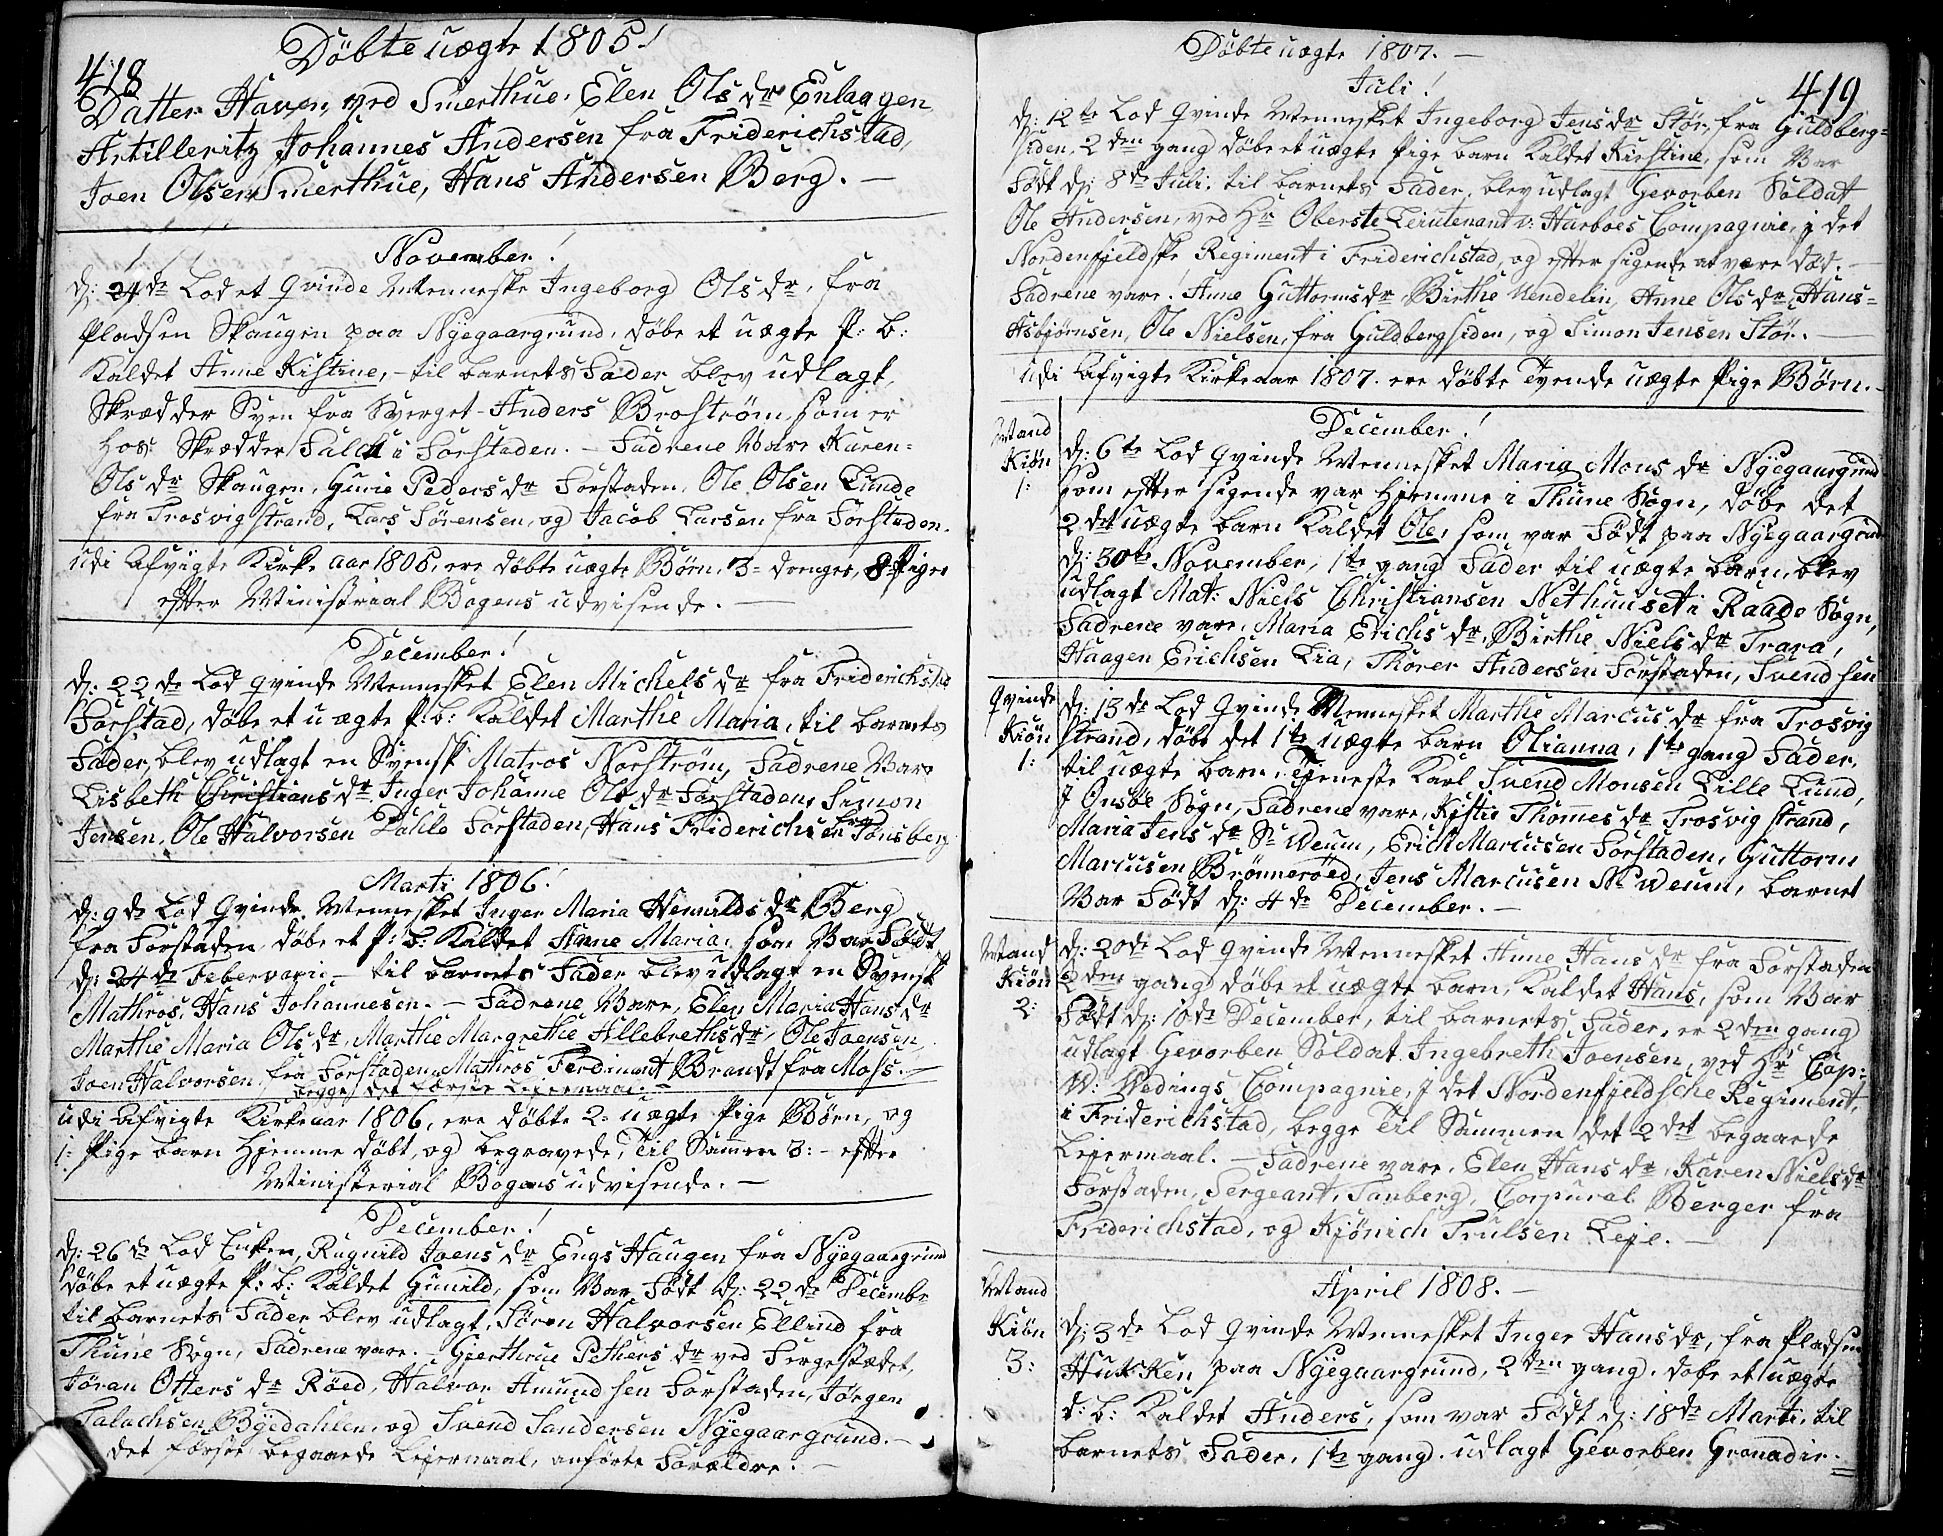 418
Döbte uægte 1805!
Datter Haven, ved Smerthue. Elen Ols dr Enlaagen,
Artilleritz Johannes Andersen fra Friderichstad,
Joen Olsen Smerthue, Hans Andersen Berg. —
November!
d: 24de Lod et Qvinde Menneske Ingeborg Ols dr, fra
Pladsen Skaugen paa Nÿegaargrund, döbe et uægte P: B:
Kaldet Anne Kistine, — til barnets Fader blev udlagt,
Skrædder Sven fra Sverget - Anders Broström, som er
hos: Skrædder Falck i Forstaden. — Fadrene Vare Karen-
Ols dr Skaugen, Gunie Peders dr Forstaden, Ole Olsen Lunde
fra Trosvig strand, Lars Sörensen, og Jacob Larsen fra Forstaden.
udi Afvigte Kirke aar 1805, ere döbte uægte Börn, 3 = drenge, 8 = Piger
efter Ministrial Bogens udvisende. —
December!
d: 22de Lod qvinde Mennesket Elen Michels dr fra Friderichstad
Forstad, döbe et uægte P: b: Kaldet Marthe Maria, til barnets
Fader, blev udlagt en Svensk Matros Norström, Fadrene Vare
Lisbeth Christians dr Inger Johanne Ols dr Forstaden, Simon
Jensen, Ole Halvorsen Forstaden, Hans Friderichsen fra Tonsberg
Marti 1806!
d: 9de Lod Qvinde Mennesket Inger Maria Hemilds dr Berg
fra Forstaden, döbe et P: B: Kaldet Anne Maria, som Var Födt
d: 24de Febervarii — til barnets Fader blev udlagt en Svensk
Mathros, Hans Johannesen. — Fadrene Vare, Elen Maria Hans dr
Marthe Maria Ols dr, Marthe Margrethe Allebreths dr, Ole Joensen,
Joen Halvorsen, fra Forstaden, Mathros Ferdinant Brandt fra Moss. —
begge det förste Leiermaal. —
udi Afvigte Kirke aar 1806, ere döbte 2 = uægte Pige Börn, og
1: Pige barn Hjemme döbt, og begravede, Til Sammen 3: — efter
Ministerial Bogens udvisende. —
December!
d: 26de Lod Enken, Ragnild Joens dr Engs Haugen fra Nÿegaargrund
döbe et uægte P: b: Kaldet Gunild, som Var Födt d: 22de Decembr
til barnets Fader blev udlagt, Sören Halvorsen Ellind fra
Thune Sogn, Fadrene vare. — Gjerthrue Pethers dr ved Fergestædet,
Jöran Otters dr Röed, Halvor Amundsen Forstaden, Jörgen
Falachsen Bÿedahlen, og Svend Sandersen Nÿegaargrund. —
det förste begaaede Leiermaal, anförte Forældre. —
419
Döbte uægte 1807. —
Juli!
d: 12te Lod Qvinde Mennesket Ingeborg Jens dr Stör, fra Guldberg=
siden, 2den gang döbe et uægte Pige barn Kaldet Kirstine, som Var
Födt d: 8de Juli, til barnets Fader, blev udlagt Gevorben Soldat
Ole Andersen, ved Hr Oberste Leiutenant v: Harboes Compagnie, j det
Nordenfjeldske Regiment i Friderichstad, og efter sigende at være död. —
Fadrene vare. Anne Guttorms dr, Birthe Wendelin, Anne Ols dr, Hans=
Asbjörnsen, Ole Nielsen, fra Guldbergsiden, og Simon Jensen Stör. —
udi Afvigte Kirke aar 1807. ere döbte Tvende uægte Pige Börn. —
December!
Mand
Kiön
1:
d: 6te Lod Qvinde Mennesket Maria Mons dr Nÿegaargrund
som efter sigende var hjemme i Thune Sogn, döbe det
2det uægte barn Kaldet Ole, som var Födt paa Nÿegaargrund
d: 30te November, 1te gang Fader til uægte barn, blev
udlagt Mat: Niels Christiansen Nethuuset i Raade Sogn,
Fadrene vare, Maria Erichs dr, Birthe Niels dr Trara,
Haagen Erichsen Lia, Thörer Andersen Forstaden, Svendsen
Qvinde
Kiön
1:
d: 13de Lod Qvinde Mennesket Marthe Marcus dr fra Trosvig
strand, döbe det 1te uægte barn Olianna, 1te gang Fader,
til uægte barn, Tjeneste Karl Svend Monsen Lille Lund,
J Onsöe Sogn, Fadrene vare, Kistie Thomes dr Trosvig strand,
Maria Jens dr Sr Weum, Erich Marcusen Forstaden, Guttorm
Marcusen Brönneröed, Jens Marcusen Nr Weum, barnet
Var Födt d: 4de December. —
Mand
Kiön
2:
d: 20de Lod qvinde Mennesket Anne Hans dr fra Forstaden
2den gang döbe et uægte barn, Kaldet Hans, som Var
Födt d: 10de December, til barnets Fader, er 2den gang
udlagt Gevorben Soldat Ingebreth Joensen, ved Hr Cap:
W: Wedings Compagnie, j det Nordenfjeldsche Regiment,
i Friderichstad, begge Til Sammen det 2det begaaede
Leiermaal. — Fadrene vare. Elen Hans dr, Karen Niels dr
Forstaden, Sergeant, Tanberg, Corpural Berger fra
Friderichstad, og Kjönich Trulsen Leje. —
April 1808. —
Mand
Kiön
3:
d: 3de Lod qvinde Mennesket Inger Hans dr, fra Pladsen
Hukken paa Nÿegaargrund, 2den gang. döbe et uægte
d: b: Kaldet Anders, som var Födt d: 18de Marti, til
barnets Fader, 1te gang. udlagt Gevorben Granadir. =